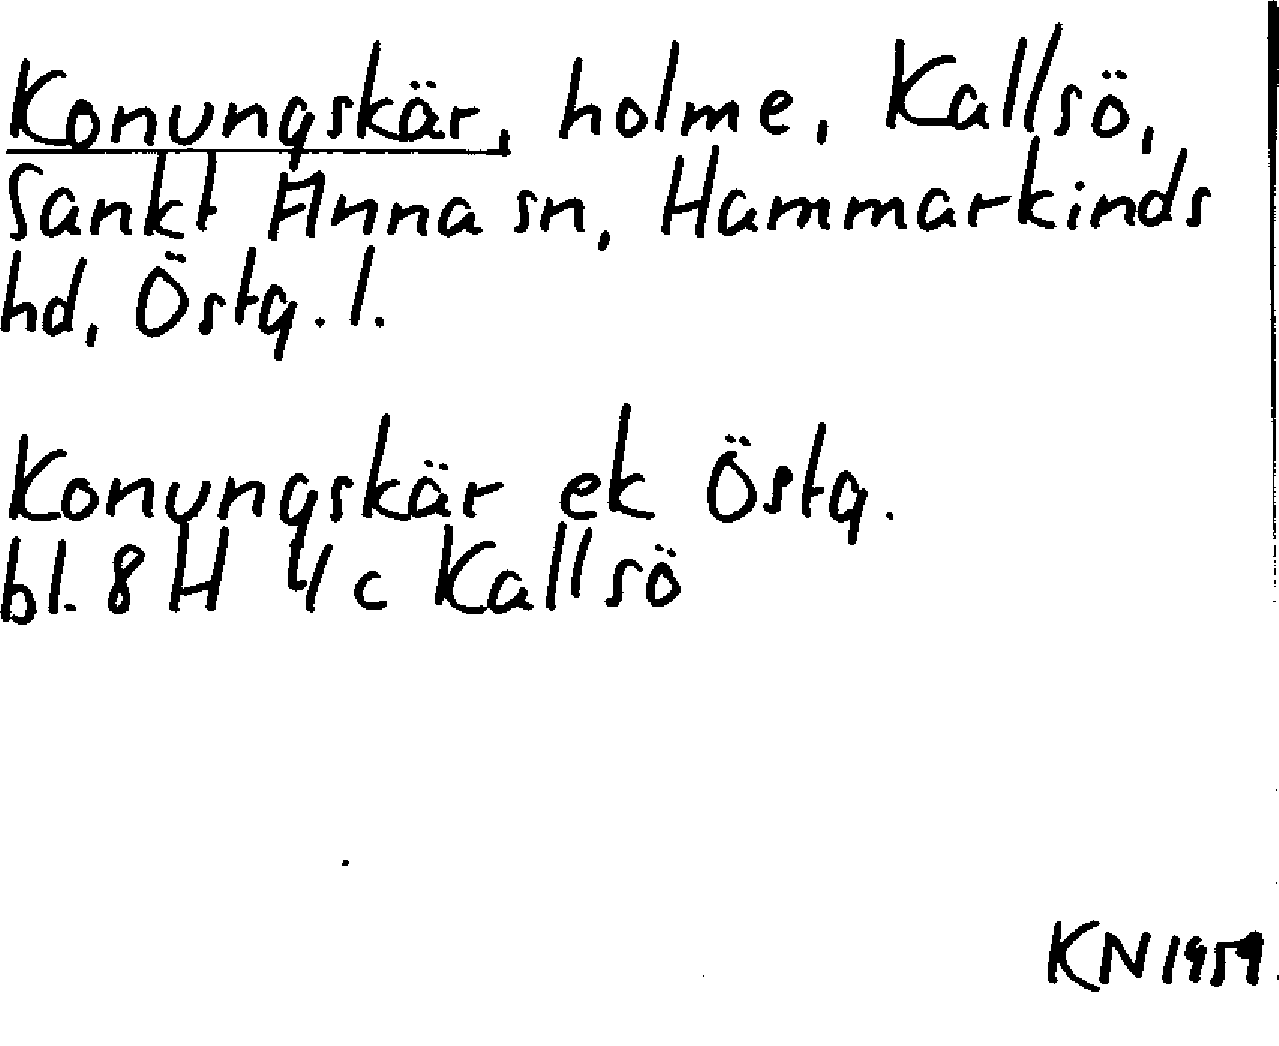 Konungskär, holme, Kallsö,
Sankt Anna sn, Hammarkinds
hd, Östg. l.
Konungskär ek Östg.
bl. 8 H 4 c Kallsö
KN 1959.